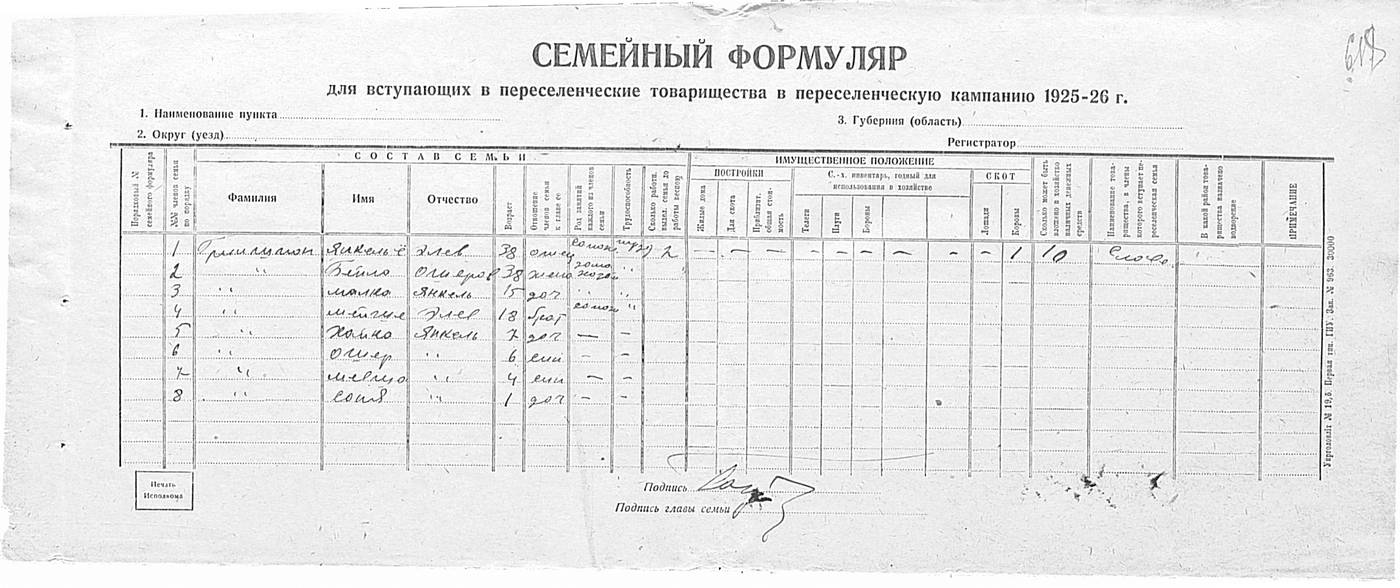 619
СЕМЕЙНЫЙ ФОРМУЛЯР
для вступающих в переселенческие товарищества в переселенческую кампанию 1925-26 г.
1. Наименование пункта
3. Губерния (область)
2. Округ (уезд)
Регистратор
СОСТАВ СЕМЬИ
ИМУЩЕСТВЕННОЕ ПОЛОЖЕНИЕ
ПОСТРОЙКИ
С.-х. инвентарь, годный для использования в хозяйстве
СКОТ
Порядковый № семейного формуляра
№№ членов семьи по порядку
Фамилия
Имя
Отчество
Возраст
Отношение членов семьи к главе ее
Род занятий каждого из членов семьи
Трудоспособность
Сколько работн. выдел. семья до работы весною
Жилые дома
Для скота
Приблизит. общая стоимость
Телеги
Плуги
Бороны
Лошади
Коровы
Сколько может быть вложено в хозяйство наличных денежных средств
Наименование товарищества, в члены которого вступает переселенческая семья
В какой район товарищества назначено водворение
ПРИМЕЧАНИЕ
1 Янкель Элев 38 отец 2 – – – – – – – – – 1 10
2 " Бейло Ошеров 38 жена "
3 " малка Янкель 15 доч " "
4 " Элев 18 брат "
5 " Хайка Янкель 7 доч – –
6 " Ошер " 6 син – –
7 " " 4 син – –
8 " соня " 1 доч – –
Печать Исполкома
Подпись
Подпись главы семьи
Укрголовліт № 19,5. Первая тип. ГИУ. Зак. № 963. 30000